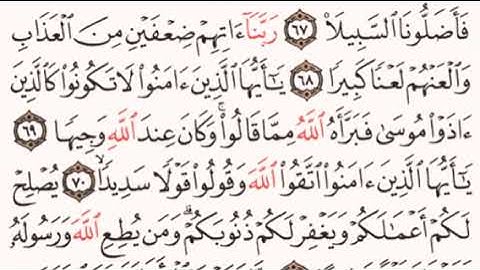 فَأَضَلُّونَا ٱلسَّبِيلَا۠ ٦٧ رَبَّنَآ ءَاتِهِمْ ضِعْفَيْنِ مِنَ ٱلْعَذَابِ
وَٱلْعَنْهُمْ لَعْنًا كَبِيرًا ٦٨ يَـٰٓأَيُّهَا ٱلَّذِينَ ءَامَنُوا۟ لَا تَكُونُوا۟ كَٱلَّذِينَ
ءَاذَوْا۟ مُوسَىٰ فَبَرَّأَهُ ٱللَّهُ مِمَّا قَالُوا۟ ۚ وَكَانَ عِندَ ٱللَّهِ وَجِيهًا ٦٩
يَـٰٓأَيُّهَا ٱلَّذِينَ ءَامَنُوا۟ ٱتَّقُوا۟ ٱللَّهَ وَقُولُوا۟ قَوْلًا سَدِيدًا ٧٠ يُصْلِحْ
لَكُمْ أَعْمَـٰلَكُمْ وَيَغْفِرْ لَكُمْ ذُنُوبَكُمْ ۗ وَمَن يُطِعِ ٱللَّهَ وَرَسُولَهُۥ